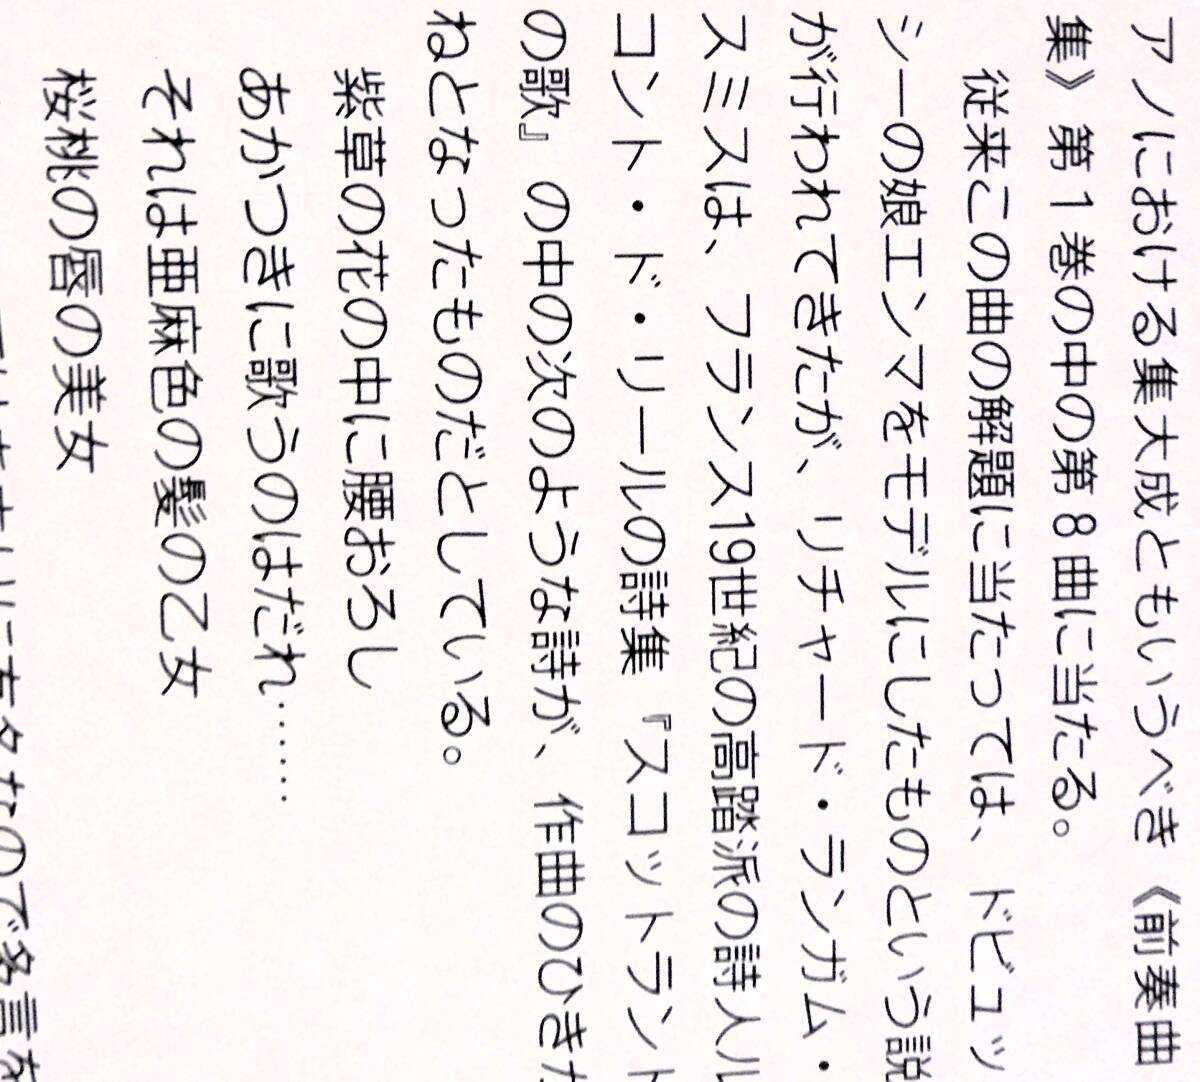 アノにおける集大成ともいうべき《前奏曲
集》第1巻の中の第8曲に当たる。
従来この曲の解題に当たっては、ドビュッ
シーの娘エンマをモデルにしたものという説
が行われてきたが、リチャード・ランガム・
スミスは、フランス19世紀の高踏派の詩人ル
コント・ド・リールの詩集『スコットランド
の歌』の中の次のような詩が、作曲のひきが
ねとなったものだとしている。
紫草の花の中に腰おろし
あかつきに歌うのはだれ……
それは亜麻色の髪の乙女
桜桃の唇の美女